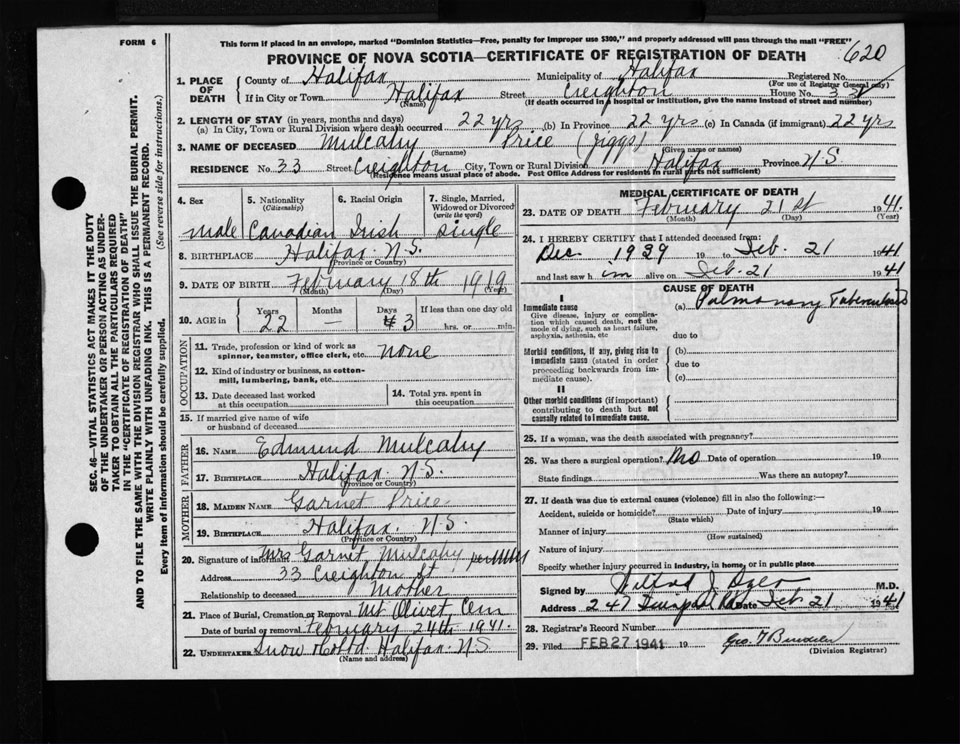 FORM 6
This form if placed in an envelope, marked "Dominion Statistics—Free, penalty for improper use $300," and properly addressed will pass through the mail "FREE"
PROVINCE OF NOVA SCOTIA—CERTIFICATE OF REGISTRATION OF DEATH
620
1. PLACE OF DEATH
County of Halifax Municipality of Halifax Registered No.
(For use of Registrar General only)
If in City or Town Halifax Street Creighton House No. 33
(Name) (If death occurred in a hospital or institution, give the name instead of street and number)
2. LENGTH OF STAY (in years, months and days)
(a) In City, Town or Rural Division where death occurred 22 yrs (b) In Province 22 yrs (c) In Canada (if immigrant) 22 yrs
3. NAME OF DECEASED Mulcahy Price (Jiggs)
(Surname) (Given name or names)
RESIDENCE No. 33 Street Creighton City, Town or Rural Division Halifax Province N.S
(Residence means usual place of abode. Post Office Address for residents in rural parts not sufficient)
4. Sex
male
5. Nationality (Citizenship)
Canadian
6. Racial Origin
Irish
7. Single, Married, Widowed or Divorced (write the word)
single
8. BIRTHPLACE Halifax N.S.
(Province or Country)
9. DATE OF BIRTH February 18th 1919
(Month) (Day)
10. AGE in
Years Months Days If less than one day old
22 — 3 hrs. or min.
OCCUPATION
11. Trade, profession or kind of work as spinner, teamster, office clerk, etc. none
12. Kind of industry or business, as cotton-mill, lumbering, bank, etc.
13. Date deceased last worked at this occupation
14. Total yrs. spent in this occupation
15. If married give name of wife or husband of deceased
FATHER
16. NAME Edmund Mulcahy
17. BIRTHPLACE Halifax N.S.
(Province or Country)
MOTHER
18. MAIDEN NAME Garnet Price
19. BIRTHPLACE Halifax. N.S.
(Province or Country)
20. Signature of informant Mrs Garnet Mulcahy
Address 33 Creighton St
Relationship to deceased Mother
21. Place of Burial, Cremation or Removal Mt Olivet Cem
Date of burial or removal February 24th 1941.
22. UNDERTAKER Snow & Co Ltd. Halifax N.S
(Name and address)
MEDICAL CERTIFICATE OF DEATH
23. DATE OF DEATH February 21st 1941.
(Month) (Day) (Year)
24. I HEREBY CERTIFY that I attended deceased from:
Dec 1939 19 to Feb. 21 1941
and last saw him alive on Feb. 21 1941
CAUSE OF DEATH
I
Immediate cause
Give disease, injury or complication which caused death, not the mode of dying, such as heart failure, asphyxia, asthenia, etc
(a) Pulmonary Tuberculosis
due to
Morbid conditions, if any, giving rise to immediate cause (stated in order proceeding backwards from immediate cause).
(b)
due to
(c)
II
Other morbid conditions (if important) contributing to death but not causally related to immediate cause.
25. If a woman, was the death associated with pregnancy?
26. Was there a surgical operation? No Date of operation 19
State findings Was there an autopsy?
27. If death was due to external causes (violence) fill in also the following:—
Accident, suicide or homicide? Date of injury 19
(State which)
Manner of injury
(How sustained)
Nature of injury
Specify whether injury occurred in industry, in home, or in public place
Signed by M.D.
Address 247 Date Feb 21 1941
28. Registrar's Record Number
29. Filed FEB 27 1941 19
(Division Registrar)
SEC. 46—VITAL STATISTICS ACT MAKES IT THE DUTY
OF THE UNDERTAKER OR PERSON ACTING AS UNDER-
TAKER TO OBTAIN ALL THE PARTICULARS REQUIRED
IN THE "CERTIFICATE OF REGISTRATION OF DEATH"
AND TO FILE THE SAME WITH THE DIVISION REGISTRAR WHO SHALL ISSUE THE BURIAL PERMIT.
WRITE PLAINLY WITH UNFADING INK. THIS IS A PERMANENT RECORD.
Every item of information should be carefully supplied. (See reverse side for instructions.)